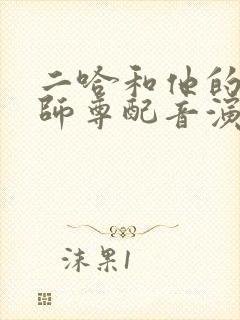 二哈和他的
師尊配音演
沫果1